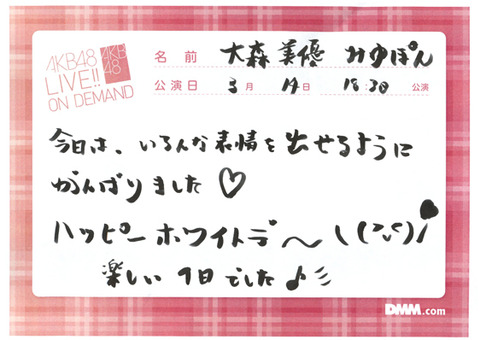 AKB48
LIVE!!
ON DEMAND
AKB
48
名前 大森美優 みゆぽん
公演日 3月 14日 18:30 公演
今日は、いろんな表情を出せるように
がんばりました♡
ハッピーホワイトデ〜\(^o^)/
楽しい1日でした♪
DMM.com